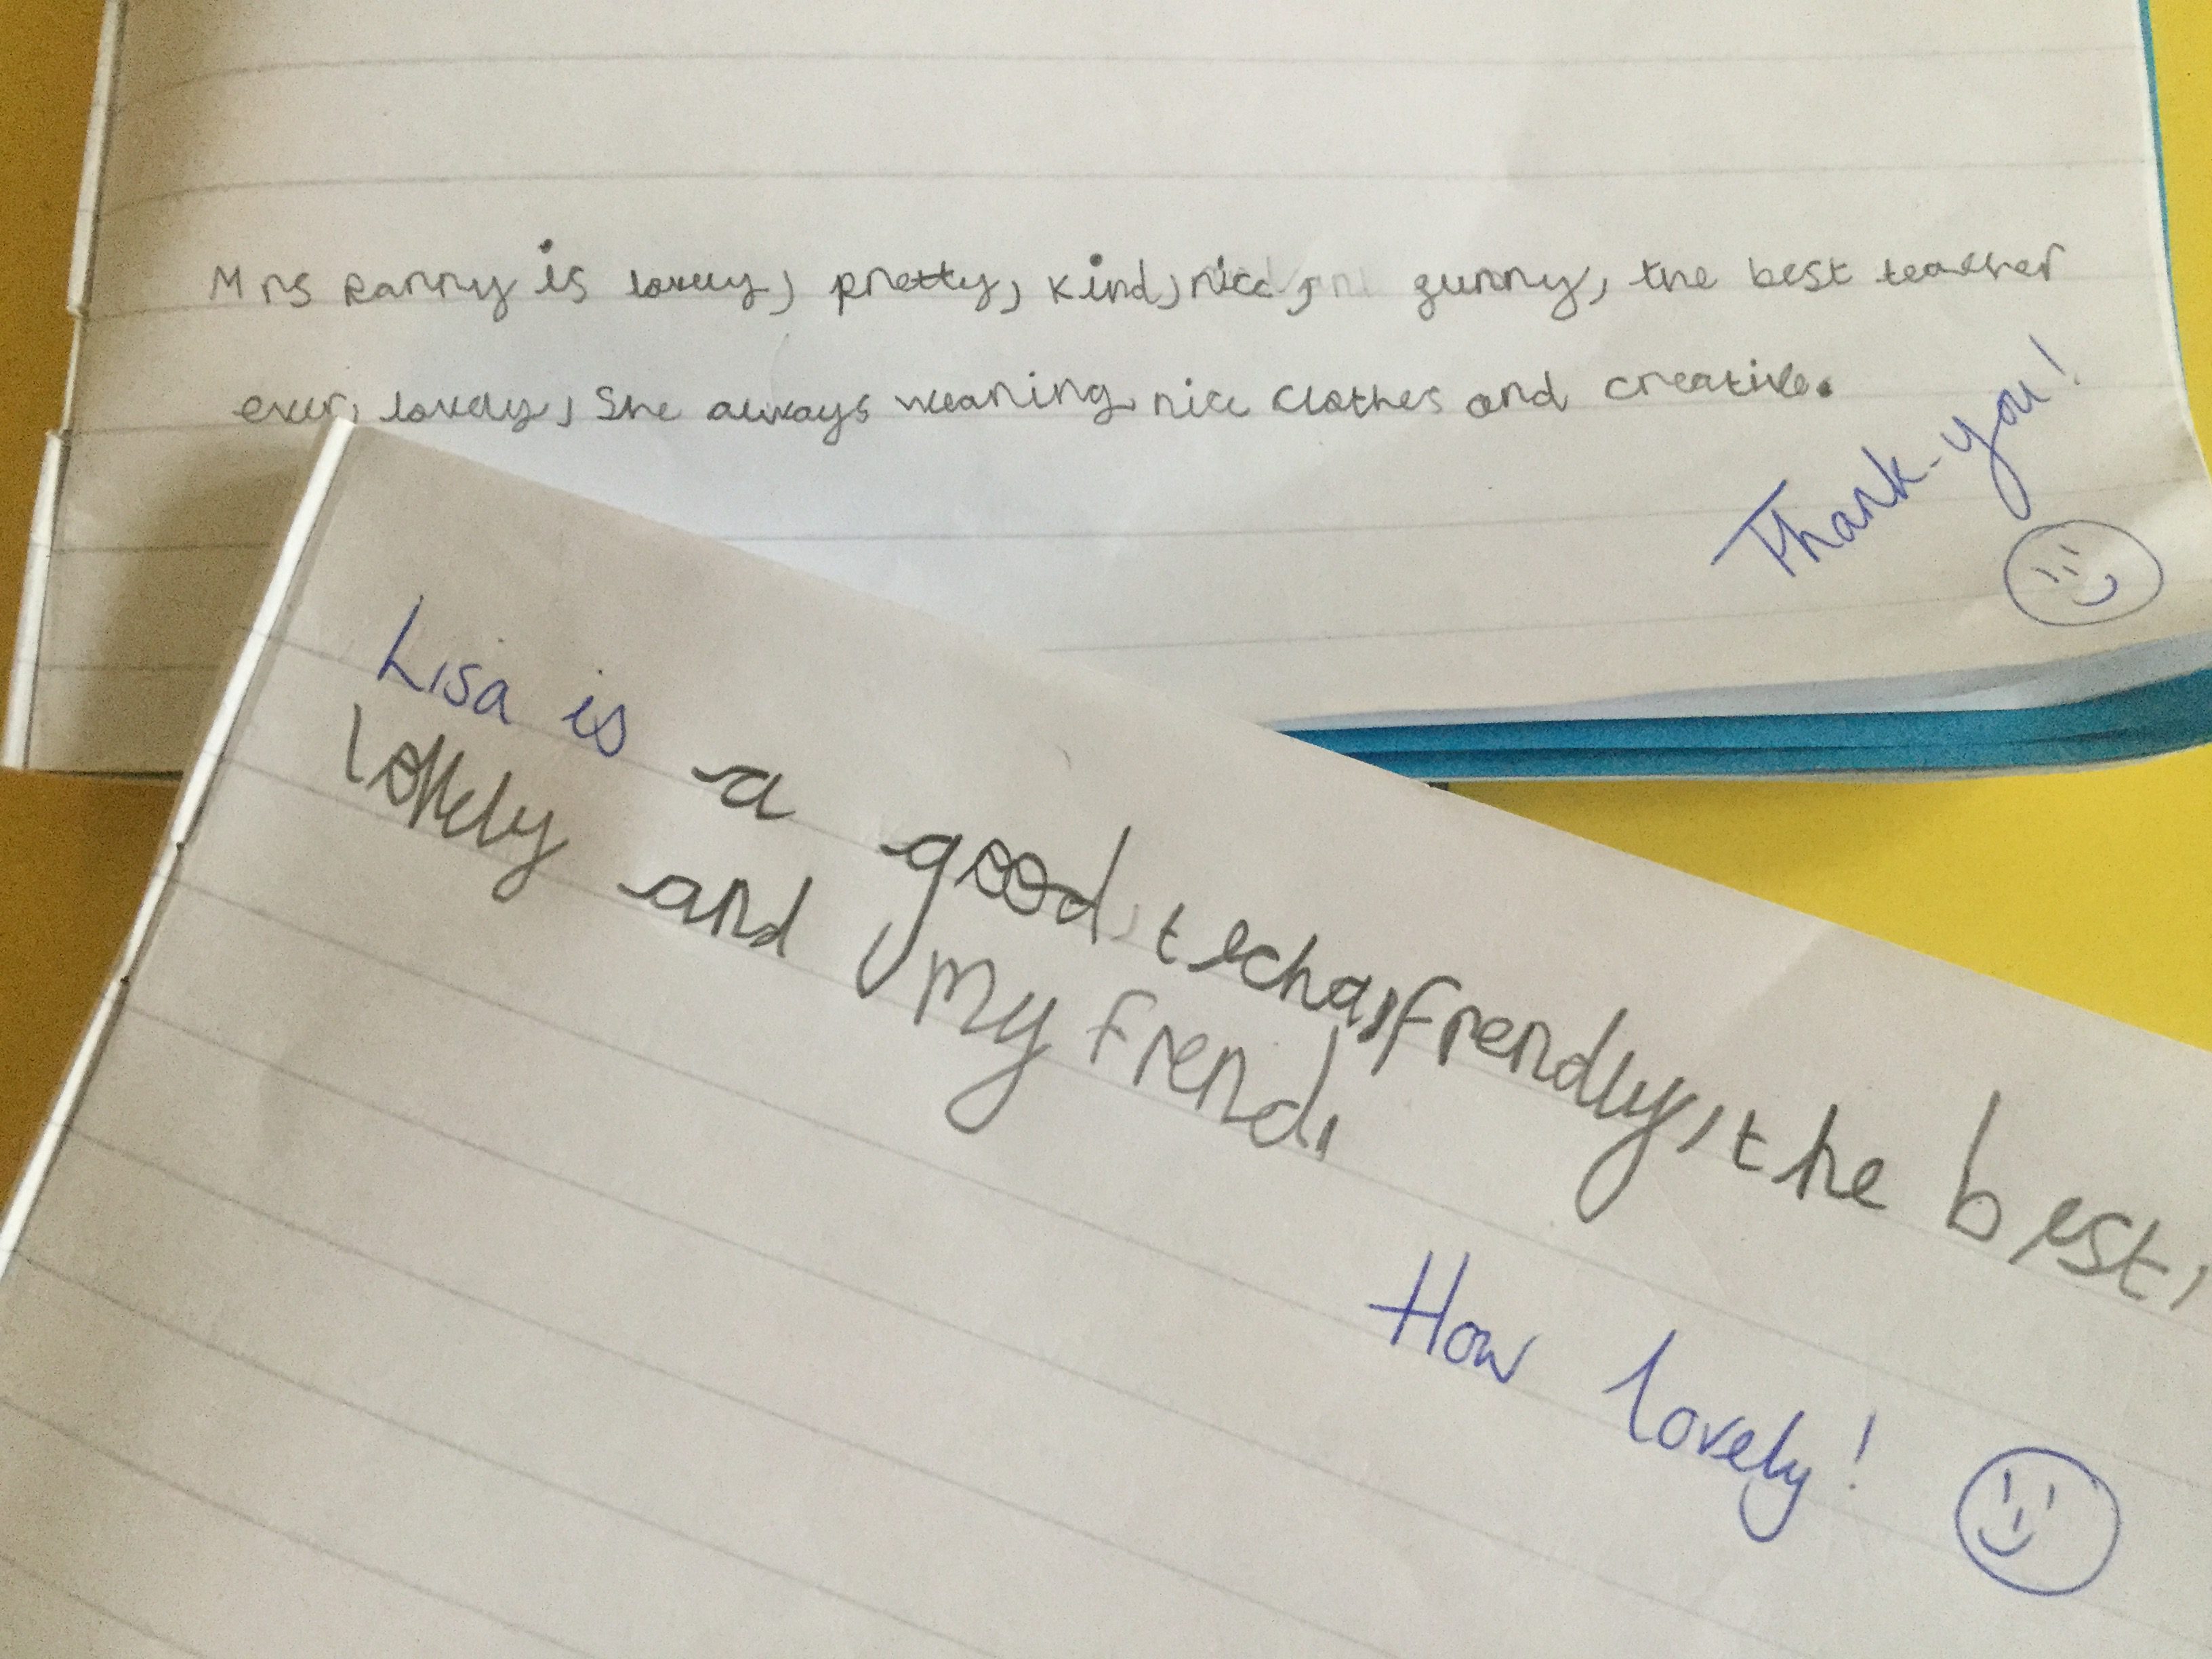 Mrs Ranny is lovely, pretty, kind, nice, gunny, the best teacher
ever, lovely, She always wearing nice clothes and creative.
Thank-you!
Lisa is a good, techa, frendly, the best,
lovely and my frend.
How lovely!